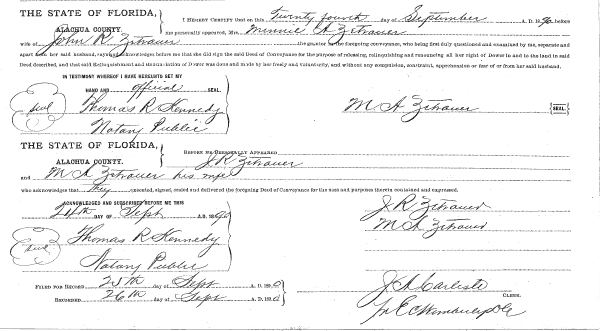 THE STATE OF FLORIDA,
ALACHUA COUNTY.
I HEREBY CERTIFY That on this Twenty fourth day of September A. D. 1890 before
me personally appeared, Mrs. Minnie A Zetrauer
wife of John R. Zetrauer the grantor in the foregoing conveyance, who being first duly questioned and examined by me, separate and
apart from her said husband, acknowledges before me that she did sign the said Deed of Conveyance for the purpose of releasing, relinquishing and renouncing all her right of Dower in and to the land in said
Deed described, and that said Relinquishment and Renunciation of Dower was done and made by her freely and voluntarily, and without any compulsion, constraint, apprehension or fear of or from her said husband.
IN TESTIMONY WHEREOF I HAVE HEREUNTO SET MY
HAND AND official SEAL.
seal
Thomas R Kennedy
Notary Public
M A Zetrauer {SEAL.}
THE STATE OF FLORIDA,
ALACHUA COUNTY.
BEFORE ME PERSONALLY APPEARED
J. R Zetrauer
and M A Zetrauer his wife
who acknowledges that they executed, signed, sealed and delivered the foregoing Deed of Conveyance for the uses and purposes therein contained and expressed.
ACKNOWLEDGED AND SUBSCRIBED BEFORE ME THIS
24th DAY OF Sept A.D. 1890
seal
Thomas R Kennedy
Notary Public
J R Zetrauer
M A Zetrauer
FILED FOR RECORD 25th day of Sept A. D. 1890
RECORDED 26th day of Sept A. D. 1890
J. A. Carlisle
CLERK.